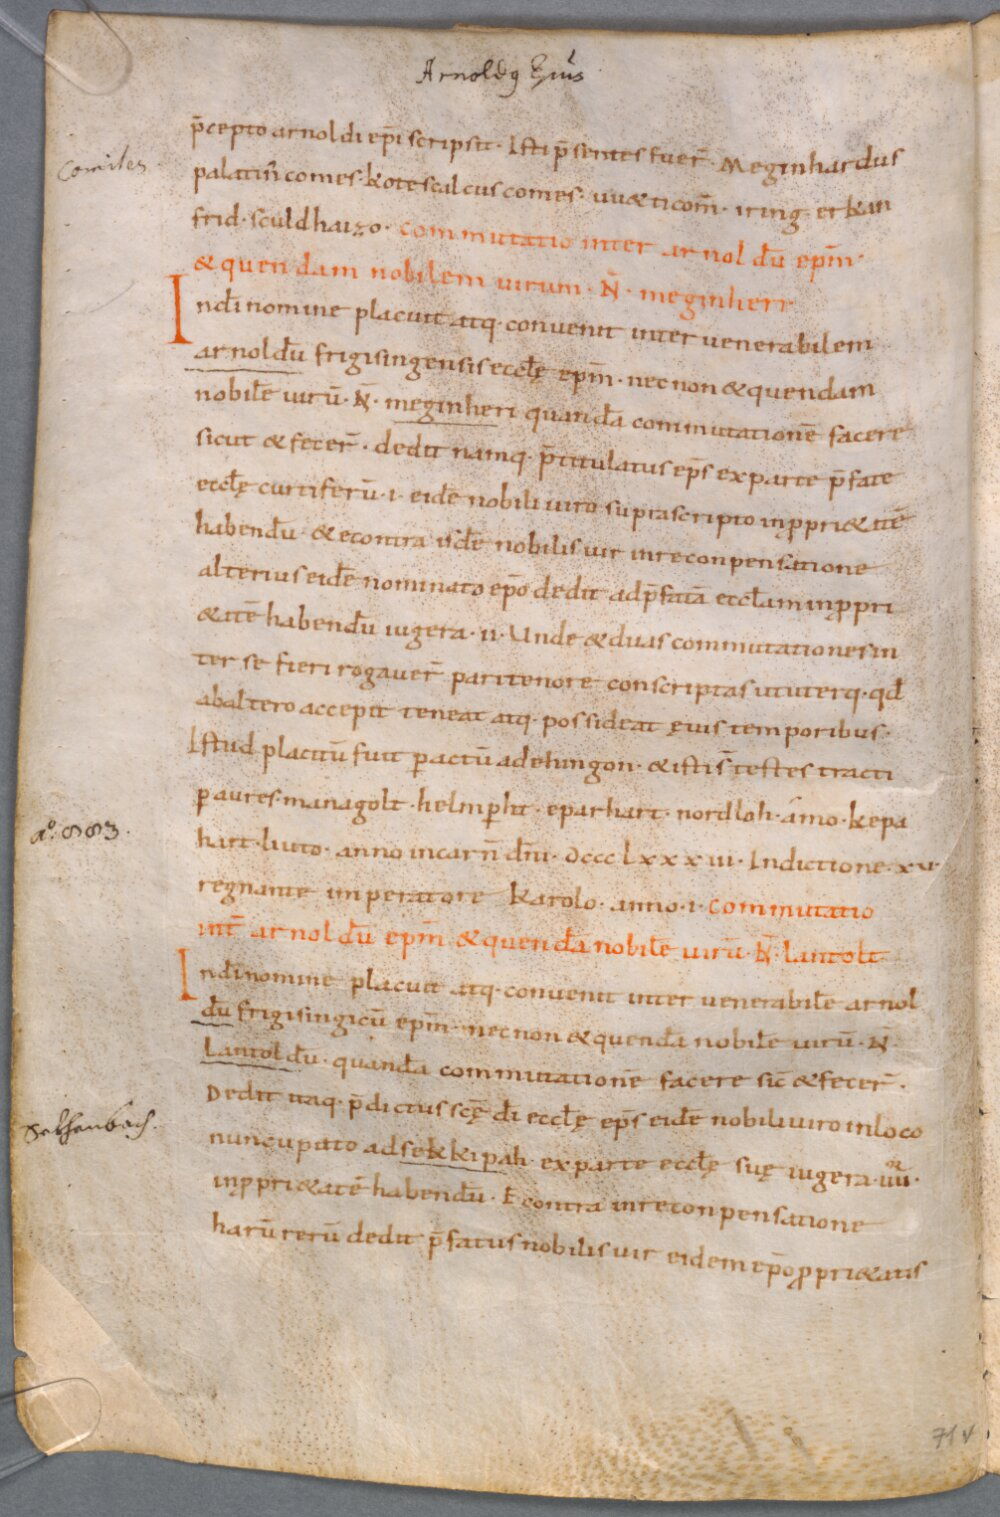 Arnoldꝯ Ep̄us
p̄cepto arnoldi ep̄i scripsit · Isti p̄sentes fuer̄ · Meginhardus
Comites
palatin̄ comes · kotescalcus comes · uu&ti com̄ · iring · erkan
frid · sculdhaizo · Commutatio inter arnoldū ep̄m ·
& quendam nobilem uirum · N̄ · meginheri
Indī nomine placuit atq · conuenit inter uenerabilem
arnoldū frigisingensis ecclę̄ ep̄m · necnon & quendam
nobilē uirū · N̄ · meginheri quandā commutationē facere
sicut & fecer̄ · dedit namq · p̄titulatus ep̄s ex parte p̄fate
ecclę̄ curtiferū · i · eidē nobili uiro suprascripto in ꝓpri&atē
habendū · & econtra isdē nobilis uir in reconpensatione
alterius eidē nominato ep̄o dedit ad p̄fatā ecclam in ꝓpri
&atē habendū iugera · ii · Unde & duas commutationes in
ter se fieri rogauer̄ pari tenore conscriptas ut uterq · qd̄
ab altero accepit teneat atq · possideat ęuis temporibus ·
Istud placitū fuit ꝑactū ad ehingon · & isti s̄ testes tracti
ꝑ aures · managolt · helmꝑht · eparhart · nordloh · amo · kepa
aº. 883.
hart · liuto · anno incarn̄ dn̄i · dccclxxxiii · Indictione · xv ·
regnante imperatore karolo · anno · i · Commutatio
int̄ arnoldū ep̄m & quendā nobilē uirū · N̄ · lantolt
Indī nomine placuit atq · conuenit inter uenerabilē arnol
dū frigisingicū ep̄m · necnon & quendā nobilē uirū · N̄ ·
Lantoldū · quandā commutationē facere sic̄ & fecer̄ ·
Dedit itaq · p̄dictus scę̄ dī ecclę̄ ep̄s eidē nobili uiro in loco
nuncupato ad sekkipah · ex parte ecclę̄ suę iugera · uii ·
in ꝓpri&atē habendū · Econtra in reconpensatione
harū rerū dedit p̄fatus nobilis uir eidem ep̄o ꝓpri&atis
71v